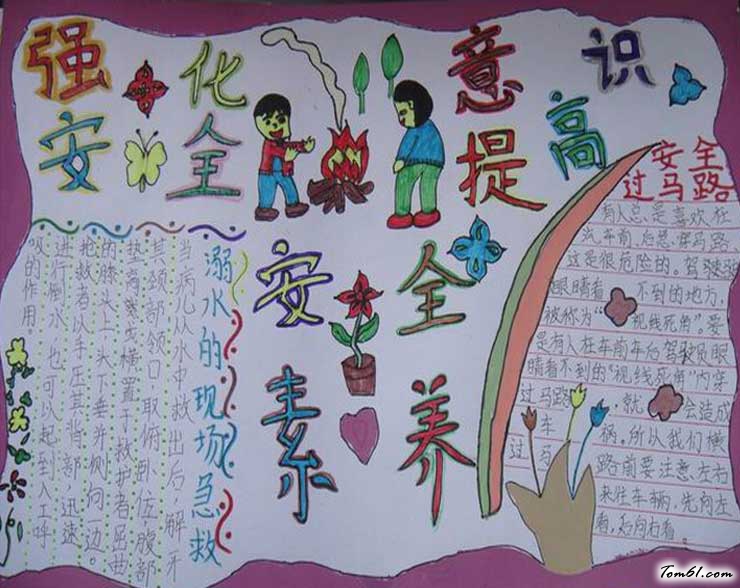 强化意识
安全提高
安全
素养
溺水的现场急救
当病儿从水中救出后,解开
其颈部领口,取俯卧位,腹部
垫高或横置于救护者屈曲
的膝头上,头下垂并侧向一边。
抢救者以手压其背部,迅速
进行倒水,也可以起到人工呼
吸的作用。
安全
过马路
有人总是喜欢在
汽车前、后急穿马路,
这是很危险的。驾驶员
眼睛看不到的地方,
被称为“视线死角”。要
是有人在车前车后驾驶员眼
睛看不到的“视线死角”内穿
过马路,就会造成
车祸。所以我们横
过马路前要注意,左右
来往车辆,先向左
看,后向右看。
Tom61.com